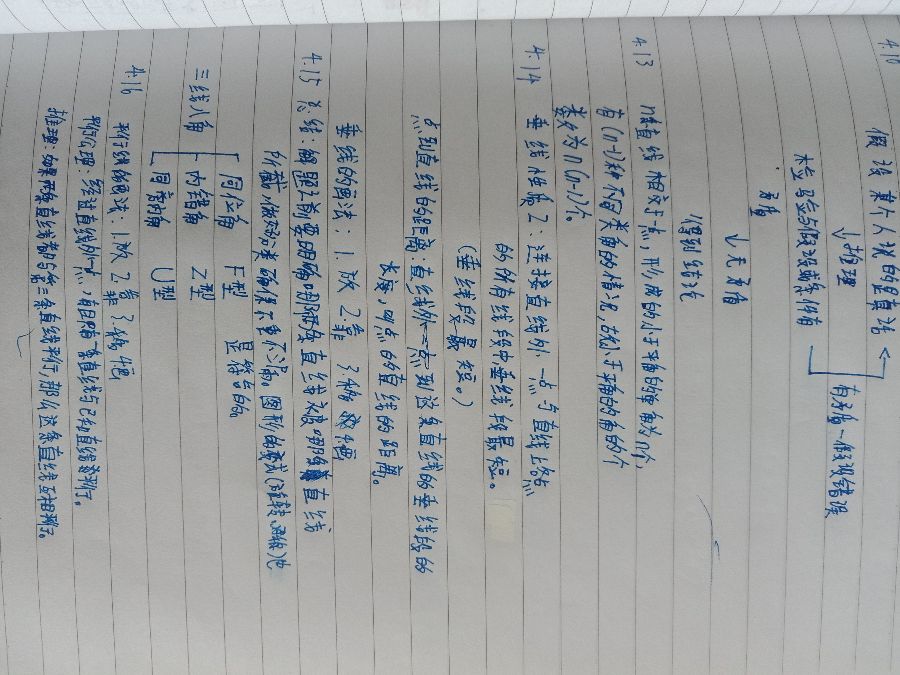 4.10
假设某人说的是真话
↓推理
检验是否与假设或条件有
矛盾
有矛盾—假设错误
↓无矛盾
得到结论
4.13
n条直线相交于一点，形成的小于平角的角为n个
有(n-1)种不同类角的情况，故小于平角的角的个
数为n(n-1)个。
4.14
垂线性质2：连接直线外一点与直线上各点
的所有线段中垂线段最短。
（垂线段最短。）
点到直线的距离：直线外一点到这条直线的垂线段的
长度，叫点的直线的距离。
垂线的画法：1.放 2靠 3移 4画
4.15 总结：解题之前要明确哪两条直线被哪条直线
所截，做动笔 不重不漏。图形的变式(旋转、对
是符合的
三线八角
同位角 F型
内错角 Z型
同旁内角 U型
4.16
平行线的画法：1.放 2靠 3移 4画
平行公理：经过直线外一点，有且只有一条直线与已知直线平行。
推理：如果两条直线都与第三条直线平行，那么这两条直线互相平行。